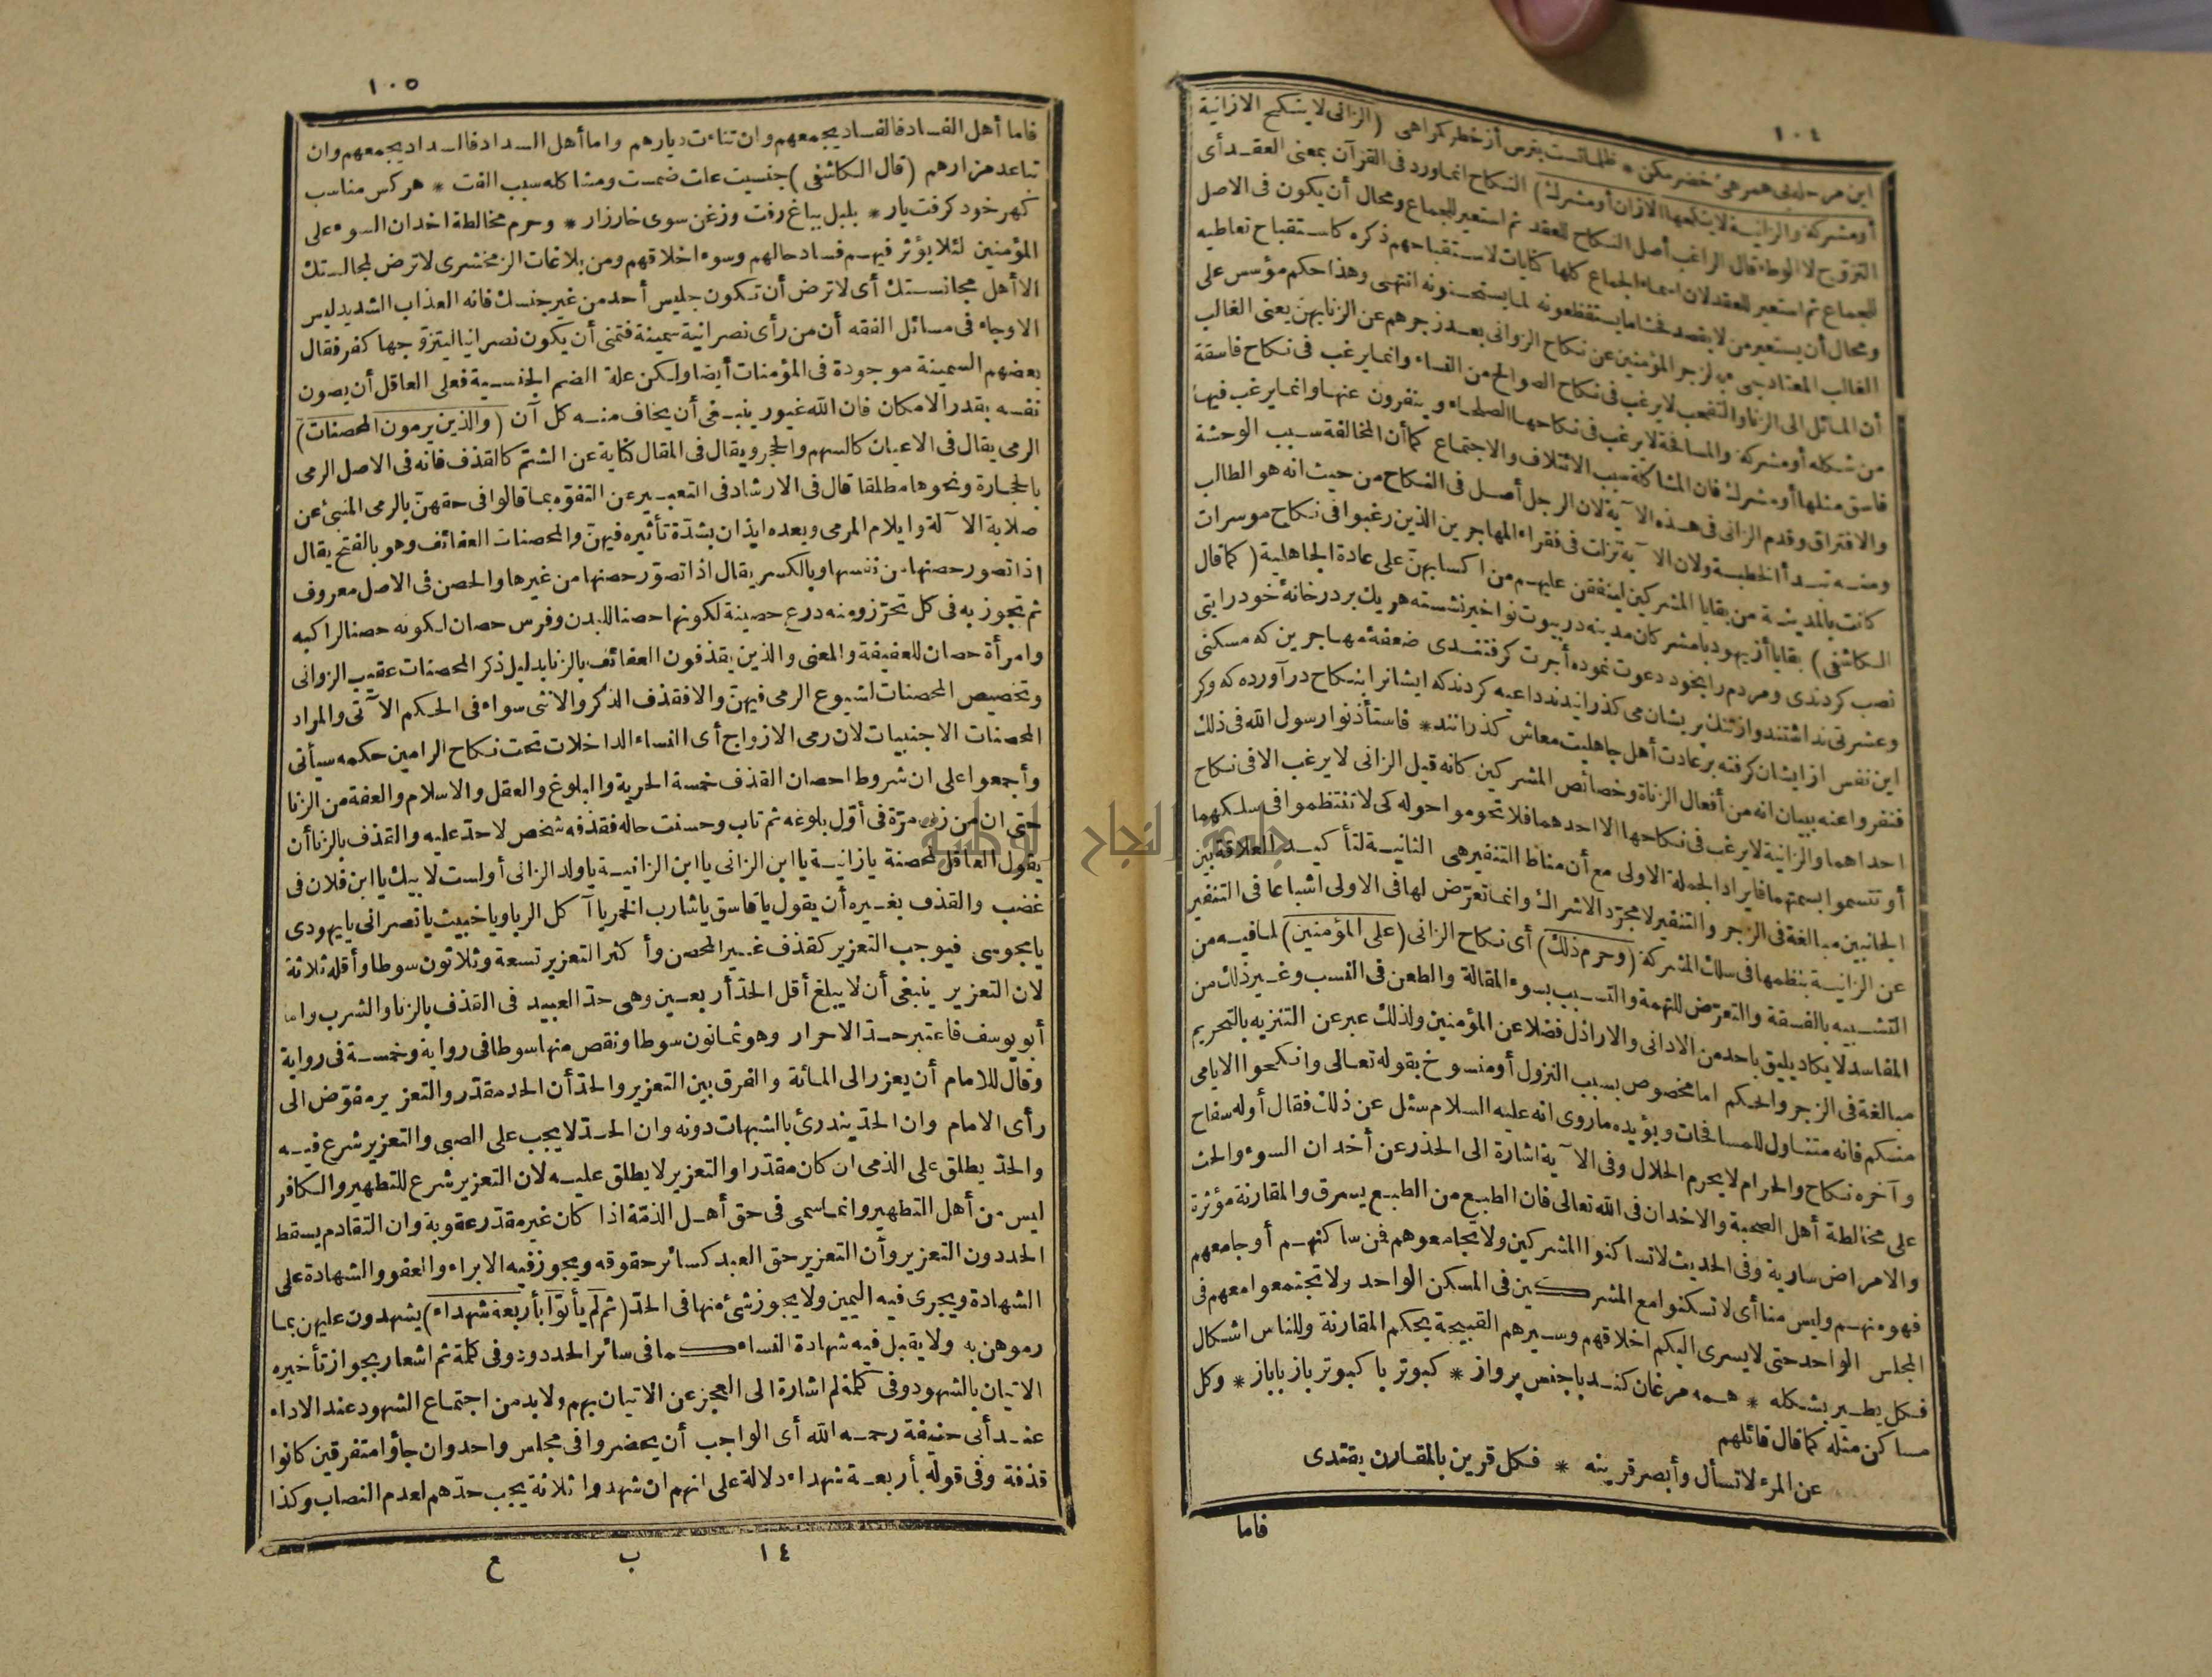 ١٠٤
اين مرحله بى همرهئ خضر مكن * ظلماتست بترس از خطر كمراهى (الزانى لا ينكح الا زانية
أو مشركة والزانية لا ينكحها الا زان أو مشرك) النكاح انما ورد فى القرآن بمعنى العقد أى
التزوج لا الوطء قال الراغب أصل النكاح للعقد ثم استعير للجماع ومحال أن يكون فى الاصل
للجماع ثم استعير للعقد لان اسماء الجماع كلها كنايات لاستقباحهم ذكره كاستقباح تعاطيه
ومحال أن يستعير من لا يقصد فحشا ما يستفظعونه لما يستحسنونه انتهى وهذا حكم مؤسس على
الغالب المعتاد جىء به لزجر المؤمنين عن نكاح الزوانى بعد زجرهم عن الزنا بهن يعنى الغالب
أن المائل الى الزنا والتقحب لا يرغب فى نكاح الصوالح من النساء وانما يرغب فى نكاح فاسقة
من شكله أو مشركة والمسافحة لا يرغب فى نكاحها الصلحاء وينفرون عنها وانما يرغب فيها
فاسق مثلها أو مشرك فان المشاكلة سبب الائتلاف والاجتماع كما أن المخالفة سبب الوحشة
والافتراق وقدم الزانى فى هذه الآية لان الرجل أصل فى النكاح من حيث انه هو الطالب
ومنه تبدأ الخطبة ولان الآية نزلت فى فقراء المهاجرين الذين رغبوا فى نكاح موسرات
كانت بالمدينة من بقايا المشركين لينفقن عليهم من اكسابهن على عادة الجاهلية (كما قال
الكاشفى) بقايا أز يهود يا مشركان مدينه در بيوت نواخير نشسته هر يك بر در خانهٔ خود رايتى
نصب كردندى ومردم را بخود دعوت نموده أجرت كرفتندى ضعفهٔ مهاجرين كه مسكنى
وعشرتى نداشتند واز تنك پريشان مى كذرانيدند داعيه كردند كه ايشانرا بنكاح درآورده كه وكر
اين نفس از ايشان كرفته بر عادت أهل جاهليت معاش كذرانند* فاستأذنوا رسول الله فى ذلك
فنفروا عنه ببيان انه من أفعال الزناة وخصائص المشركين كانه قيل الزانى لا يرغب الا فى نكاح
احداهما والزانية لا يرغب فى نكاحها الا احدهما فلا تحوموا حوله كى لا تنتظموا فى سلكهما
أو تتسموا بسمتهما فايراد الجملة الاولى مع أن مناط التنفير هى الثانية لتأكيد العلاقة بين
الجانبين مبالغة فى الزجر والتنفير لا مجرّد الاشراك وانما تعرّض لها فى الاولى اشباعا فى التنفير
عن الزانية بنظمها فى سلك المشركة (وحرم ذلك) أى نكاح الزانى (على المؤمنين) لما فيه من
التشبيه بالفسقة والتعرّض للتهمة والتسبب بسوء المقالة والطعن فى النسب وغير ذلك من
المفاسد لا يكاد يليق باحد من الادانى والاراذل فضلا عن المؤمنين ولذلك عبر عن التنزيه بالتحريم
مبالغة فى الزجر والحكم اما مخصوص بسبب النزول أو منسوخ بقوله تعالى وانكحوا الايامى
منكم فانه متناول للمسافحات ويؤيده ماروى انه عليه السلام سئل عن ذلك فقال أوله سفاح
وآخره نكاح والحرام لا يحرم الحلال وفى الآية اشارة الى الحذر عن أخدان السوء والحث
على مخالطة أهل الصحبة والاخدان فى الله تعالى فان الطبع من الطبع يسرق والمقارنة مؤثرة
والامراض سارية وفى الحديث لا تساكنوا المشركين ولا تجامعوهم فمن ساكنهم أو جامعهم
فهو منهم وليس منا أى لا تسكنوا مع المشركين فى المسكن الواحد ولا تجتمعوا معهم فى
المجلس الواحد حتى لا يسرى اليكم اخلاقهم وسيرهم القبيحة بحكم المقارنة وللناس اشكال
فكل يطير بشكله * همه مرغان كند با جنس پرواز * كبوتر با كبوتر باز باباز * وكل
مساكن مثله كما قال قائلهم
عن المرء لا تسأل وأبصر قرينه * فكل قرين بالمقارن يقتدى
فاما
١٠٥
فاما أهل الفساد فالفساد يجمعهم وان تناءت ديارهم واما أهل السداد فالسداد يجمعهم وان
تباعد مزارهم (قال الكاشفى) جنسيت علت ضمست ومشاكله سبب الفت * هر كس مناسب
كهر خود كرفت يار* بلبل بباغ رفت وزغن سوى خارزار* وحرم مخالطة اخدان السوء على
المؤمنين لئلا يؤثر فيهم فساد حالهم وسوء اخلاقهم ومن بلاغات الزمخشرى لا ترض لمجالستك
الا أهل مجانستك أى لا ترض أن تكون جليس أحد من غير جنسك فانه العذاب الشديد ليس
الا وجاء فى مسائل الفقه أن من رأى نصرانية سمينة فتمنى أن يكون نصرانيا ليتزوجها كفر فقال
بعضهم السمينة موجودة فى المؤمنات أيضا ولكن علة الضم الجنسية فعلى العاقل أن يصون
نفسه بقدر الامكان فان الله غيور ينبغى أن يخاف منه كل آن (والذين يرمون المحصنات)
الرمى يقال فى الاعيان كالسهم والحجر ويقال فى المقال كناية عن الشتم كالقذف فانه فى الاصل الرمى
بالحجارة ونحوها مطلقا قال فى الارشاد فى التعبير عن التفوّه بما قالوا فى حقهنّ بالرمى المنبئ عن
صلابة الآلة وايلام المرمى وبعده ايذان بشدّة تأثيره فيهنّ والمحصنات العفائف وهو بالفتح يقال
اذا تصور حصنها من نفسها وبالكسر يقال اذا تصوّر حصنها من غيرها والحصن فى الاصل معروف
ثم تجوز به فى كل تحرّز ومنه درع حصينة لكونها حصنا للبدن وفرس حصان لكونه حصنا لراكبه
وامرأة حصان للعفيفة والمعنى والذين يقذفون العفائف بالزنا بدليل ذكر المحصنات عقيب الزوانى
وتخصيص المحصنات لشيوع الرمى فيهنّ والا فقذف الذكر والانثى سواء فى الحكم الآتى والمراد
المحصنات الاجنبيات لان رمى الازواج أى النساء الداخلات تحت نكاح الرامين حكمه سيأتى
وأجمعوا على ان شروط احصان القذف خمسة الحرية والبلوغ والعقل والاسلام والعفة من الزنا
حتى ان من زنى مرّة فى أوّل بلوغه ثم تاب وحسنت حاله فقذفه شخص لا حدّ عليه والقذف بالزنا أن
يقول العاقل لمحصنة يا زانية يا ابن الزانى يا ابن الزانية يا ولد الزانى أو لست لابيك يا ابن فلان فى
غضب والقذف بغيره أن يقول يا فاسق يا شارب الخمر يا آكل الربا ويا خبيث يا نصرانى يا يهودى
يا مجوسى فيوجب التعزير كقذف غير المحصن وأكثر التعزير تسعة وثلاثون سوطا وأقله ثلاثة
لان التعزير ينبغى أن لا يبلغ أقل الحدّ أربعين وهى حدّ العبيد فى القذف بالزنا والشرب واما
أبو يوسف فاعتبر حدّ الاحرار وهو ثمانون سوطا ونقص منها سوطا فى رواية وخمسة فى رواية
وقال للامام أن يعزر الى المائة والفرق بين التعزير والحدّ أن الحد مقدّر والتعزير مفوّض الى
رأى الامام وان الحدّ يندرئ بالشبهات دونه وان الحدّ لا يجب على الصبى والتعزير شرع فيه
والحدّ يطلق على الذمى ان كان مقدّرا والتعزير لا يطلق عليه لان التعزير شرع للتطهير والكافر
ليس من أهل التطهير وانما سمى فى حق أهل الذمّة اذا كان غير مقدّر عقوبة وان التقادم يسقط
الحد دون التعزير وأن التعزير حق العبد كسائر حقوقه ويجوز فيه الابراء والعفو والشهادة على
الشهادة ويجرى فيه اليمين ولا يجوز شئ منها فى الحدّ (ثم لم يأتوا بأربعة شهداء) يشهدون عليهن بما
رموهن به ولا يقبل فيه شهادة النساء كما فى سائر الحدود وفى كلمة ثم اشعار بجواز تأخيره
الاتيان بالشهود وفى كلمة لم اشارة الى العجز عن الاتيان بهم ولا بد من اجتماع الشهود عند الاداء
عند أبى حنيفة رحمه الله أى الواجب أن يحضروا فى مجلس واحد وان جاؤا متفرقين كانوا
قذفة وفى قوله بأربعة شهداء دلالة على انهم ان شهدوا ثلاثة يجب حدّهم لعدم النصاب وكذا
١٤ ب ع
جامعة النجاح الوطنية